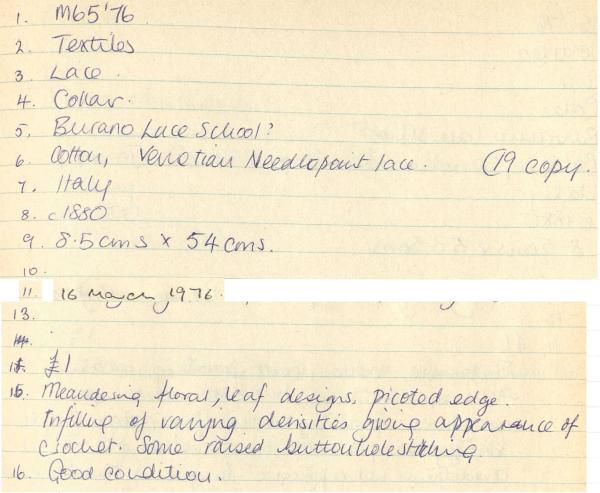 1. M65'76
2. Textiles
3. Lace.
4. Collar.
5. Burano Lace School?
6. Cotton, Venetian Needlepoint lace. (19 copy.
7. Italy
8. c1880
9. 8.5cms x 54cms.
10.
11. 16 March 1976.
13.
14.
£1
15. Meandering floral, leaf designs, picoted edge.
Infilling of varying densities giving appearance of
crochet. Some raised buttonhole stitching.
16. Good condition.